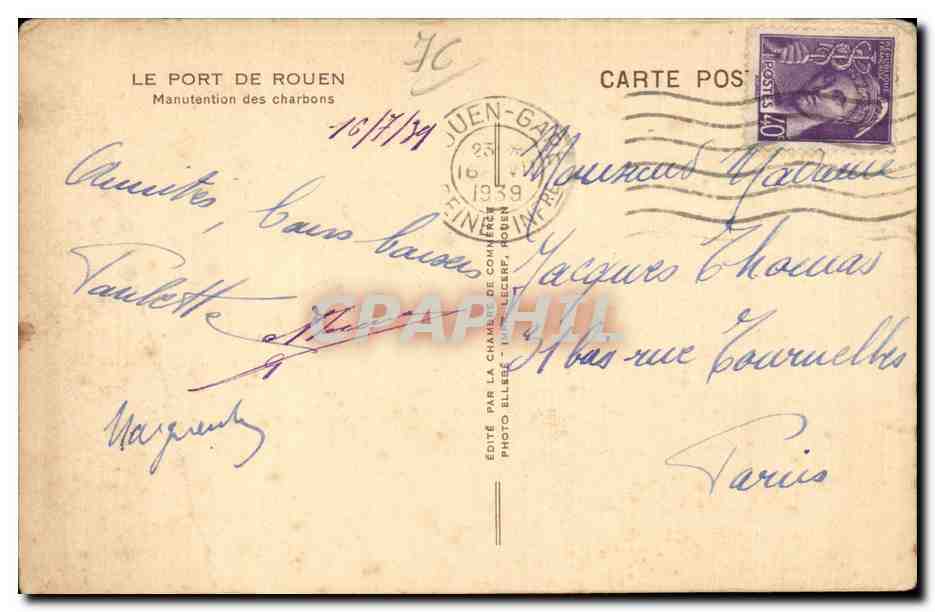 76
LE PORT DE ROUEN
Manutention des charbons
CARTE POST
POSTES 40
16/7/39
ROUEN-GARE
23
16
1939
SEINE INFRE
Amitiés, bons baisers
Paulette
Marguerite
Monsieur Madame
Jacques Thomas
bas rue Tournelles
Paris
ÉDITÉ PAR LA CHAMBRE DE COMMERCE
PHOTO ELLEBÉ - IMP. LECERF, ROUEN
CPAPHIL